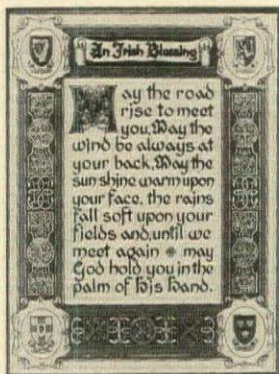 An Irish Blessing
May the road
rise to meet
you. May the
wind be always at
your back. May the
sun shine warm upon
your face, the rains
fall soft upon your
fields and, until we
meet again may
God hold you in the
palm of His Hand.